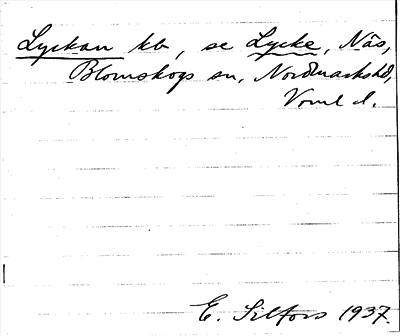 Lyckan kb, se Lycke, Näs,
Blomskogs sn, Nordmarkshd,
Vrml d.
E. Silfors 1937.